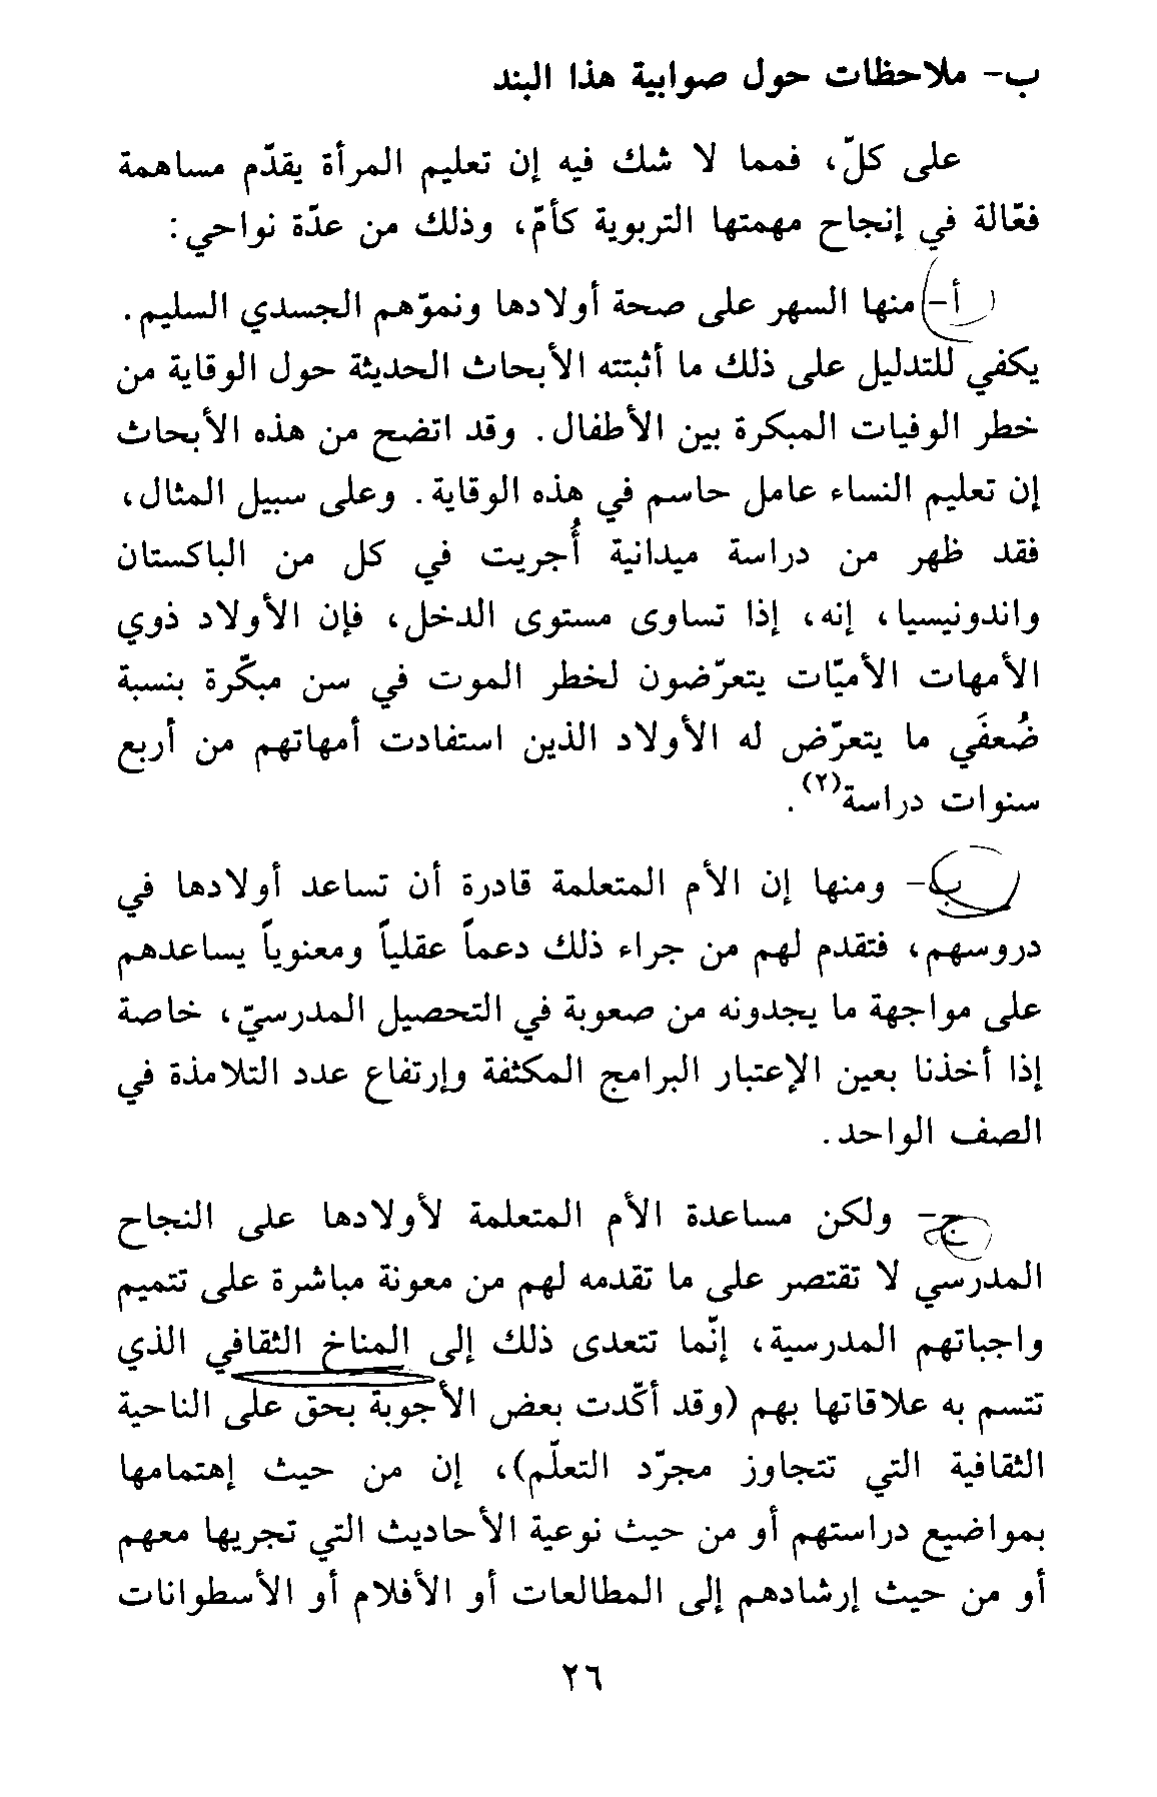 ب- ملاحظات حول صوابية هذا البند
على كلّ، فمما لا شك فيه إن تعليم المرأة يقدّم مساهمة
فعّالة في إنجاح مهمتها التربوية كأمّ، وذلك من عدّة نواحي:
أ- منها السهر على صحة أولادها ونموّهم الجسدي السليم.
يكفي للتدليل على ذلك ما أثبتته الأبحاث الحديثة حول الوقاية من
خطر الوفيات المبكرة بين الأطفال. وقد اتضح من هذه الأبحاث
إن تعليم النساء عامل حاسم في هذه الوقاية. وعلى سبيل المثال،
فقد ظهر من دراسة ميدانية أُجريت في كل من الباكستان
واندونيسيا، إنه، إذا تساوى مستوى الدخل، فإن الأولاد ذوي
الأمهات الأميّات يتعرّضون لخطر الموت في سن مبكّرة بنسبة
ضُعفَي ما يتعرّض له الأولاد الذين استفادت أمهاتهم من أربع
سنوات دراسة(٢).
ب- ومنها إن الأم المتعلمة قادرة أن تساعد أولادها في
دروسهم، فتقدم لهم من جراء ذلك دعماً عقلياً ومعنوياً يساعدهم
على مواجهة ما يجدونه من صعوبة في التحصيل المدرسيّ، خاصة
إذا أخذنا بعين الإعتبار البرامج المكثفة وإرتفاع عدد التلامذة في
الصف الواحد.
ج- ولكن مساعدة الأم المتعلمة لأولادها على النجاح
المدرسي لا تقتصر على ما تقدمه لهم من معونة مباشرة على تتميم
واجباتهم المدرسية، إنّما تتعدى ذلك إلى المناخ الثقافي الذي
تتسم به علاقاتها بهم (وقد أكّدت بعض الأجوبة بحق على الناحية
الثقافية التي تتجاوز مجرّد التعلّم)، إن من حيث إهتمامها
بمواضيع دراستهم أو من حيث نوعية الأحاديث التي تجريها معهم
أو من حيث إرشادهم إلى المطالعات أو الأفلام أو الأسطوانات
٢٦